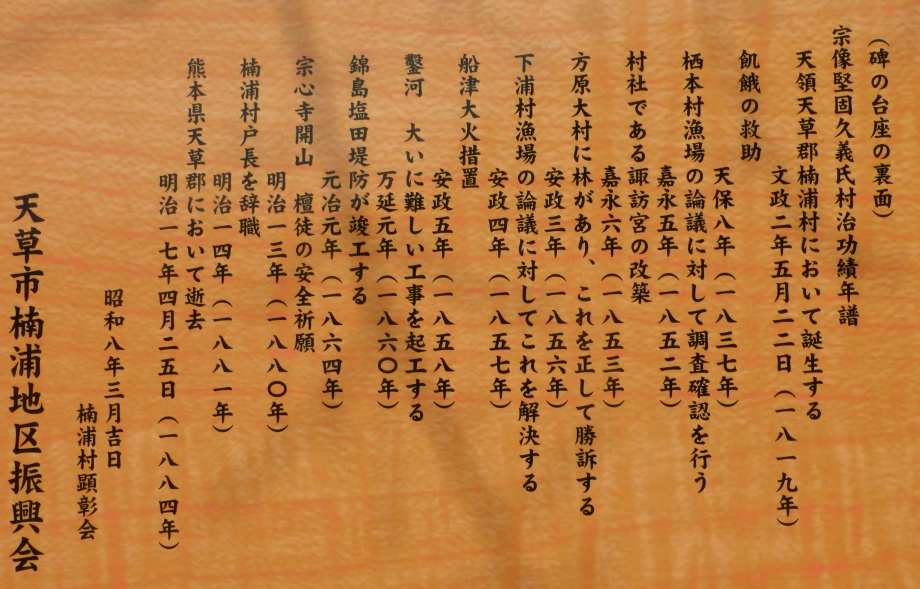 （碑の台座の裏面）
宗像堅固久義氏村治功績年譜
天領天草郡楠浦村において誕生する
文政二年五月二二日（一八一九年）
飢餓の救助
天保八年（一八三七年）
栖本村漁場の論議に対して調査確認を行う
嘉永五年（一八五二年）
村社である諏訪宮の改築
嘉永六年（一八五三年）
方原大村に林があり、これを正して勝訴する
安政三年（一八五六年）
下浦村漁場の論議に対してこれを解決する
安政四年（一八五七年）
船津大火措置
安政五年（一八五八年）
鑿河　大いに難しい工事を起工する
万延元年（一八六〇年）
錦島塩田堤防が竣工する
元治元年（一八六四年）
宗心寺開山　檀徒の安全祈願
明治一三年（一八八〇年）
楠浦村戸長を辞職
明治一四年（一八八一年）
熊本県天草郡において逝去
明治一七年四月二五日（一八八四年）
昭和八年三月吉日
楠浦村顕彰会
天草市楠浦地区振興会